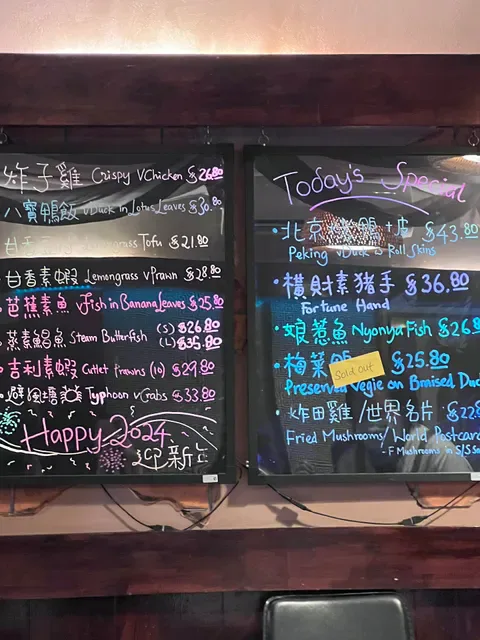 炸子雞 Crispy VChicken $26.80
八寶鴨飯 VDuck in Lotus Leaves $30.80
甘香 grass Tofu $21.80
甘香素蝦 Lemongrass vPrawn $28.80
芭蕉素魚 vFish in Banana Leaves $25.80
蒸素鯧魚 Steam Butterfish (S) $26.80
(L) $35.80
吉利素蝦 Cutlet Prawns (10) $29.80
避風塘 Typhoon vCrabs $33.80
Happy 2024
迎新
Today's Special
北京 鴨+皮 $43.80
Peking vDuck w Roll Skins
橫財素豬手 $36.80
Fortune Hand
娘惹魚 Nyonya Fish $26.8
梅菜 $25.80
Sold out
Preserved Vegie on Braised Duc
炸田雞/世界名片 $22.8
Fried Mushrooms/World Postcard
- F Mushrooms in S/S